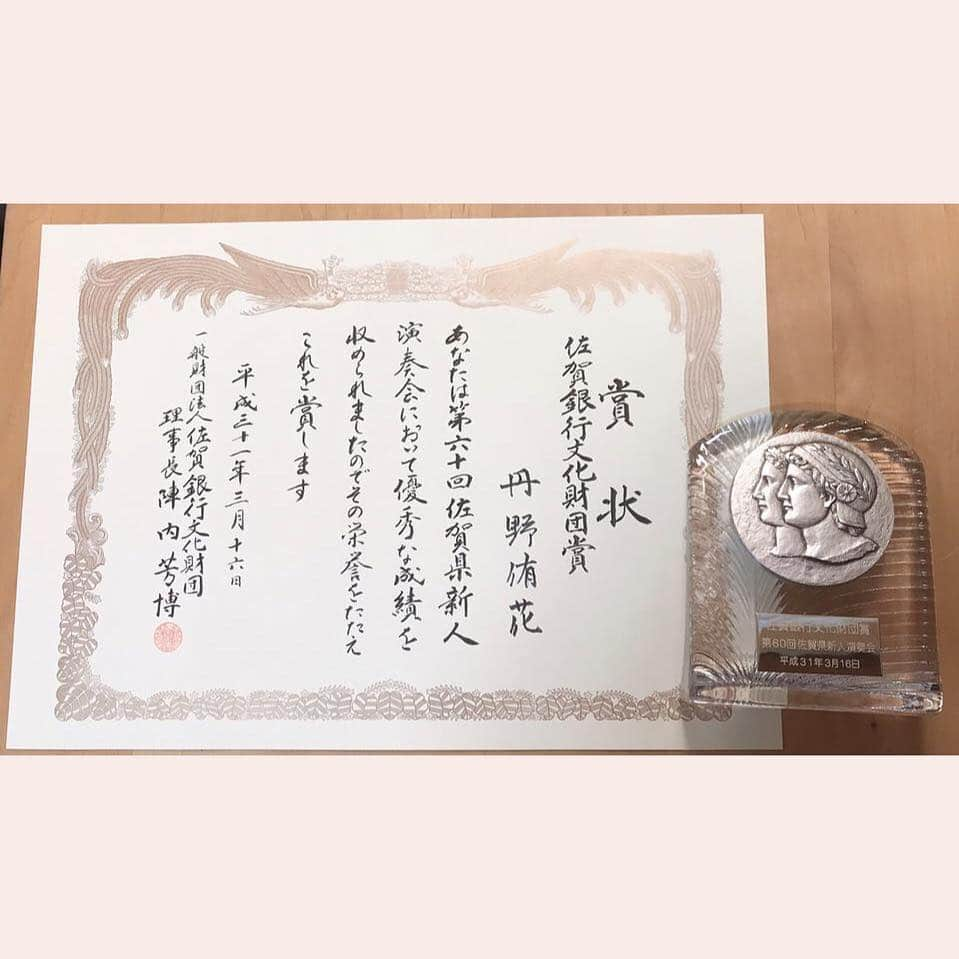 賞状
佐賀銀行文化財団賞
丹野侑花
あなたは第六十回佐賀県新人
演奏会において優秀な成績を
収められましたのでその栄誉をたたえ
これを賞します
平成三十一年三月十六日
一般財団法人佐賀銀行文化財団
理事長陣内芳博
佐賀銀行文化財団賞
第60回佐賀県新人演奏会
平成31年3月16日